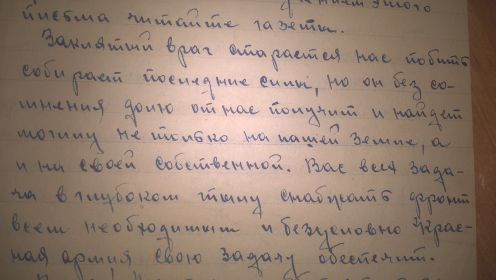 этого
письма читайте газеты.
Заклятий враг старается нас побить
собирает последние силы, но он без со-
мнения долю от нас получит и найдет
могилу не только на нашей земле, а
и на своей собственной. Вас всех зада-
ча в глубоком тылу снабжать фронт
всем необходимым и безусловно Крас-
ная армия свою задачу обеспечит.